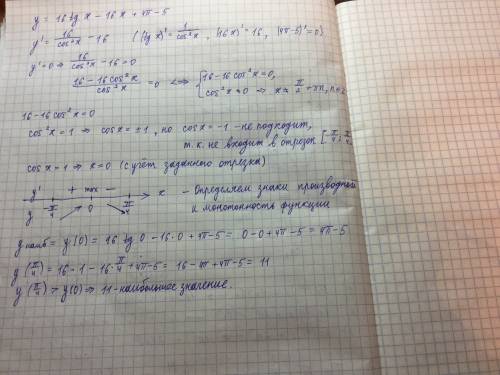 y = 16 tg x - 16x + 4π - 5
y' = 16/cos²x - 16 ( (tg x)' = 1/cos²x , (16x)' = 16, (4π-5)' = 0)
y' = 0 ⇒ 16/cos²x - 16 = 0
(16 - 16cos²x)/cos²x = 0 <=> { 16 - 16cos²x = 0,
cos²x ≠ 0 ⇒ x ≠ π/2 + πn, n∈
16 - 16cos²x = 0
cos²x = 1 ⇒ cosx = ±1, но cosx = -1 - не подходит,
т.к. не входит в отрезок [-π/4; π/4
cosx = 1 ⇒ x = 0 (с учет заданного отрезка)
y' + max - x - Определяем знаки производной
y -π/4 0 π/4 и монотонность функции
y наиб = y(0) = 16 tg 0 - 16·0 + 4π - 5 = 0 - 0 + 4π - 5 = 4π - 5
y(π/4) = 16·1 - 16·π/4 + 4π - 5 = 16 - 4π + 4π - 5 = 11
y(π/4) > y(0) ⇒ 11 - наибольшее значение.